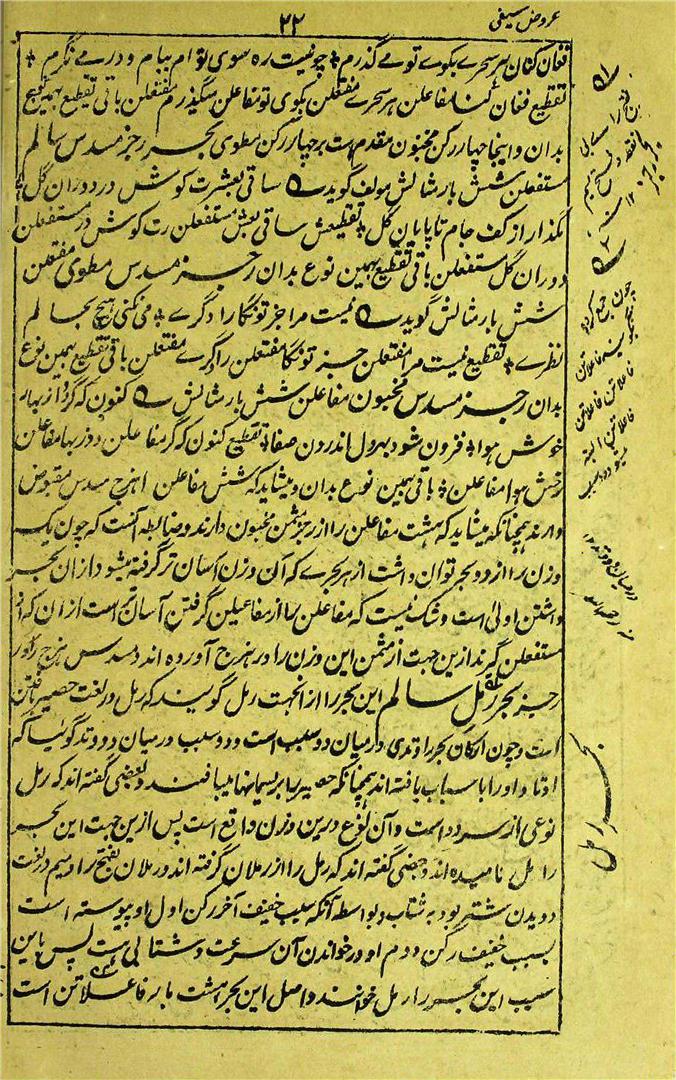 عروض سیفی
۲۲
فغان کنان هر سحرے بکوے تو مے گذرم * چو نیست ره سوی تو ام ببام و در مے نگرم *
تقطیع فغان کنا مفاعلن هر سحرے مفتعلن بکوی تو مفاعلن میگذرم مفتعلن باقی تقطیع بهمین نوع
بدان و اینجا چهار رکن مخبون مقدم است بر چهار رکن مطوی بحر رجز مسدس سالم
مستفعلن شش بار مثالش مولف گوید ساقی بعشرت کوش در دوران گل *
مگذار از کف جام تا پایان گل * تقطیعش ساقی بعش مستفعلن رت کوش در مستفعلن
دوران گل مستفعلن باقی تقطیع بهمین نوع بدان رجز مسدس مطوی مفتعلن
شش بار مثالش گوید نیست مرا جز تو نگارا دگرے * می نکنی هیچ بحالم
نظرے * تقطیع نیست مرا مفتعلن جز تو نگا مفتعلن را دگرے مفتعلن باقی تقطیع بهمین نوع
بدان رجز مسدس مخبون مفاعلن شش بار مثالش کنون که گرد از بهار
خوش هوا * فزون شود بهر دل اندرون صفا * تقطیع کنون که گر مفاعلن د از بها مفاعلن
رخش هوا مفاعلن * باقی بهمین نوع بدان و میشاید که شش مفاعلن از هزج مسدس مقبوض
دارند همچنانکه میشاید که هشت مفاعلن را از رجز مثمن مخبون دارند و ضابطه آنست که چون یک
وزن را از دو بحر توان داشت از هر بحرے که آن وزن آسان تر گرفته میشود ازان بحر
داشتن اولی است و شک نیست که مفاعلن را از مفاعیلن گرفتن آسان تر است از آن که از
مستفعلن گیرند ازین جهت از مثمن این وزن را در هزج آورده اند و مسدس هزج را در
رجز بحر رمل سالم این بحر را ازانجهت رمل گویند که رمل در لغت حصیر بافتن
است و چون ارکان بحر را وتدی درمیان دو سبب است و دو سبب درمیان دو وتد گوئیا که
اوتاد او را با سباب بافته اند همچنانکه حصیر را بریسمانها میبافند و بعضی گفته اند که رمل
نوعی از سرود است و آن نوع درین وزن واقع است پس ازین جهت این بحر
را رمل نامیده اند و بعضی گفته اند که رمل را از رملان گرفته اند و رملان بفتح را و میم در لغت
دویدن شتر بود به شتاب و بواسطه آنکه سبب خفیف آخر رکن اول او پیوسته است
بسبب خفیف رکن دوم او در خواندن آن سرعت و شتابی است پس باین
سبب این بحر را رمل خوانند و اصل این بحر هشت بار فاعلاتن است
چون جمع کردی
فاعلاتن فاعلاتن
بحر رمل